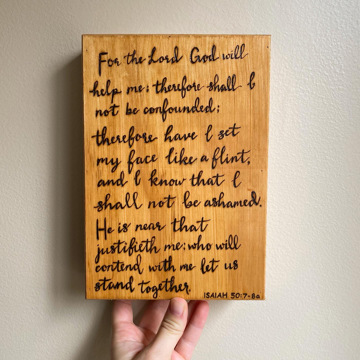 For the Lord God will
help me; therefore shall I
not be confounded;
therefore have I set
my face like a flint,
and I know that I
shall not be ashamed.
He is near that
justifieth me; who will
contend with me let us
stand together.
ISAIAH 50:7-8a